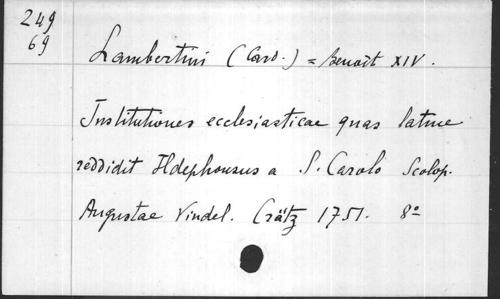 249
69
Lambertini (Card.) = Benoît XIV.
Institutiones ecclesiasticae quas latine
reddidit Ildephonsus a S. Carolo Scolop.
Augustae Vindel. Crätz 1751. 8º